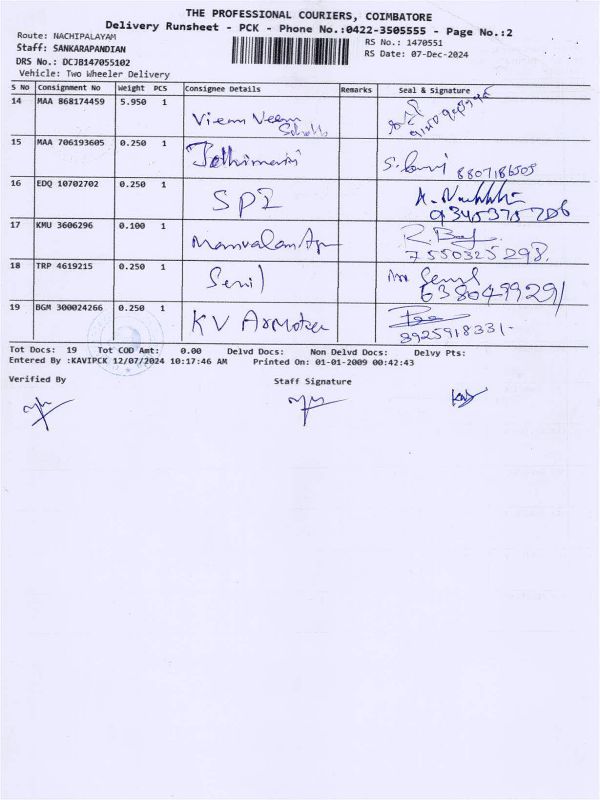 THE PROFESSIONAL COURIERS, COIMBATORE
Delivery Runsheet - PCK - Phone No.:0422-3505555 - Page No.:2
Route: NACHIPALAYAM RS No.: 1470551
Staff: SANKARAPANDIAN RS Date: 07-Dec-2024
DRS No.: DCJB147055102
Vehicle: Two Wheeler Delivery
S No Consignment No Weight PCS Consignee Details Remarks Seal & Signature
14 MAA 868174459 5.950 1 Veem
15 MAA 706193605 0.250 1 Jothimani 8807186505
16 EDQ 10702702 0.250 1 SPI
17 KMU 3606296 0.100 1 R.
7550325298.
18 TRP 4619215 0.250 1
6380499291
19 BGM 300024266 0.250 1 KV
8925918331-
Tot Docs: 19 Tot COD Amt: 0.00 Delvd Docs: Non Delvd Docs: Delvy Pts:
Entered By :KAVIPCK 12/07/2024 10:17:46 AM Printed On: 01-01-2009 00:42:43
Verified By Staff Signature